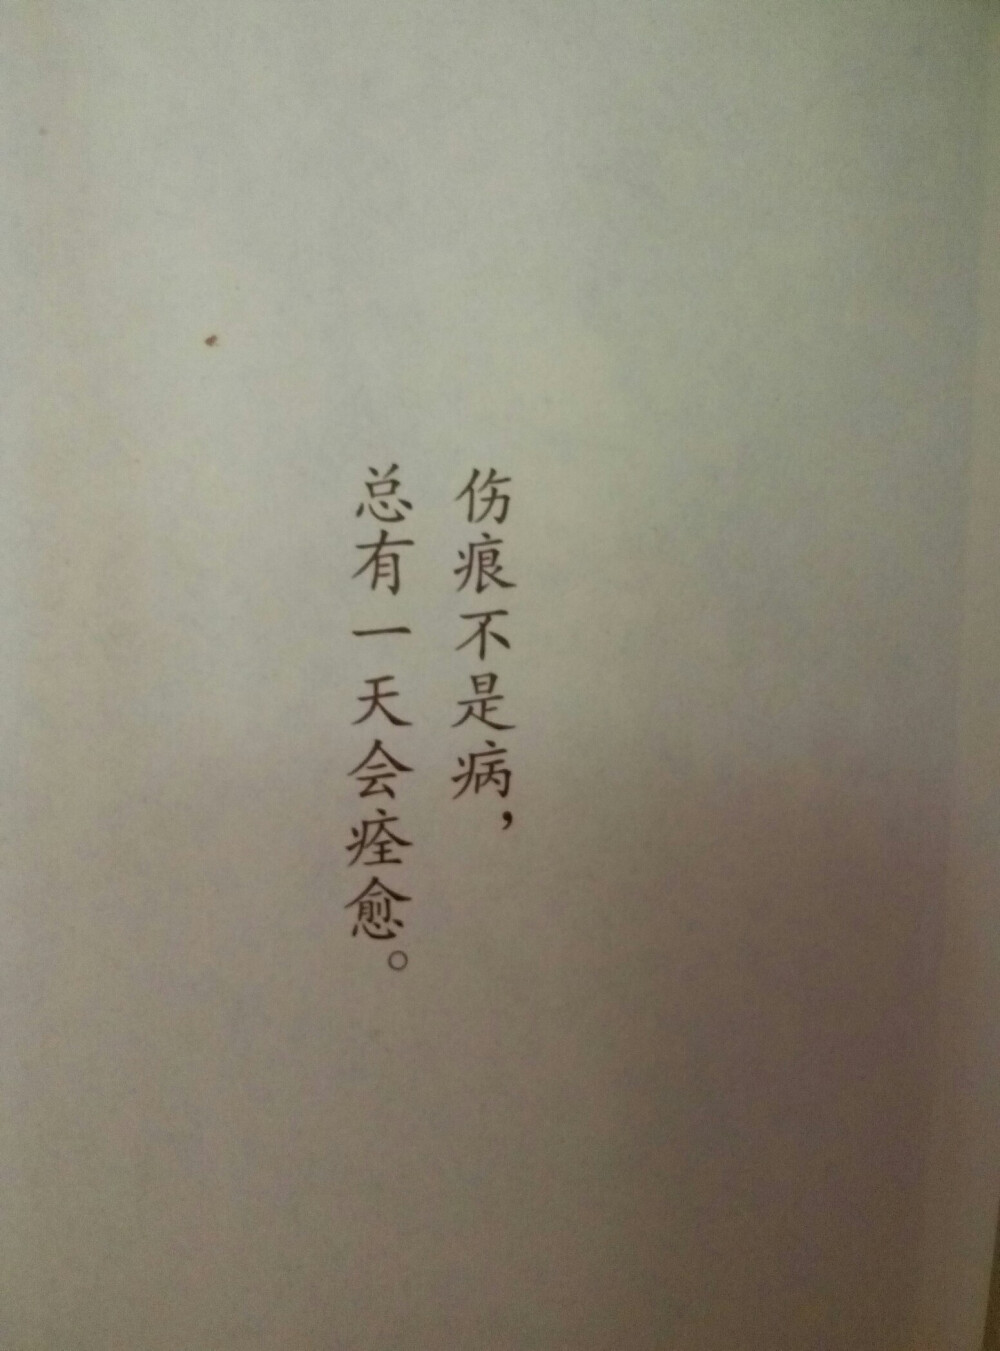 伤痕不是病，
总有一天会痊愈。